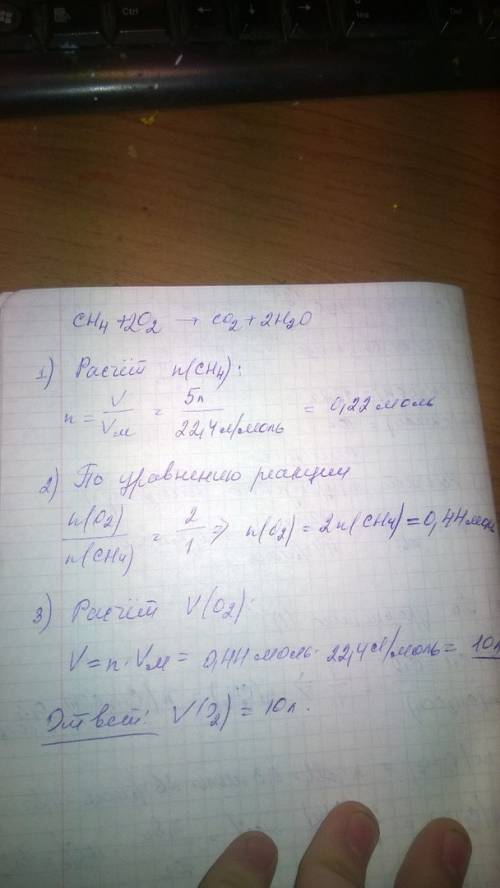 Ctrl
CH₄ + 2O₂ → CO₂ + 2H₂O
1) Расчёт n(CH₄):
n = V/Vм = 5л/22,4 л/моль = 0,22 моль
2) По уравнению реакции
n(O₂)/n(CH₄) = 2/1 ⇒ n(O₂) = 2n(CH₄) = 0,44 моль
3) Расчёт V(O₂):
V = n · Vм = 0,44 моль · 22,4 л/моль = 10л
Ответ: V(O₂) = 10л.